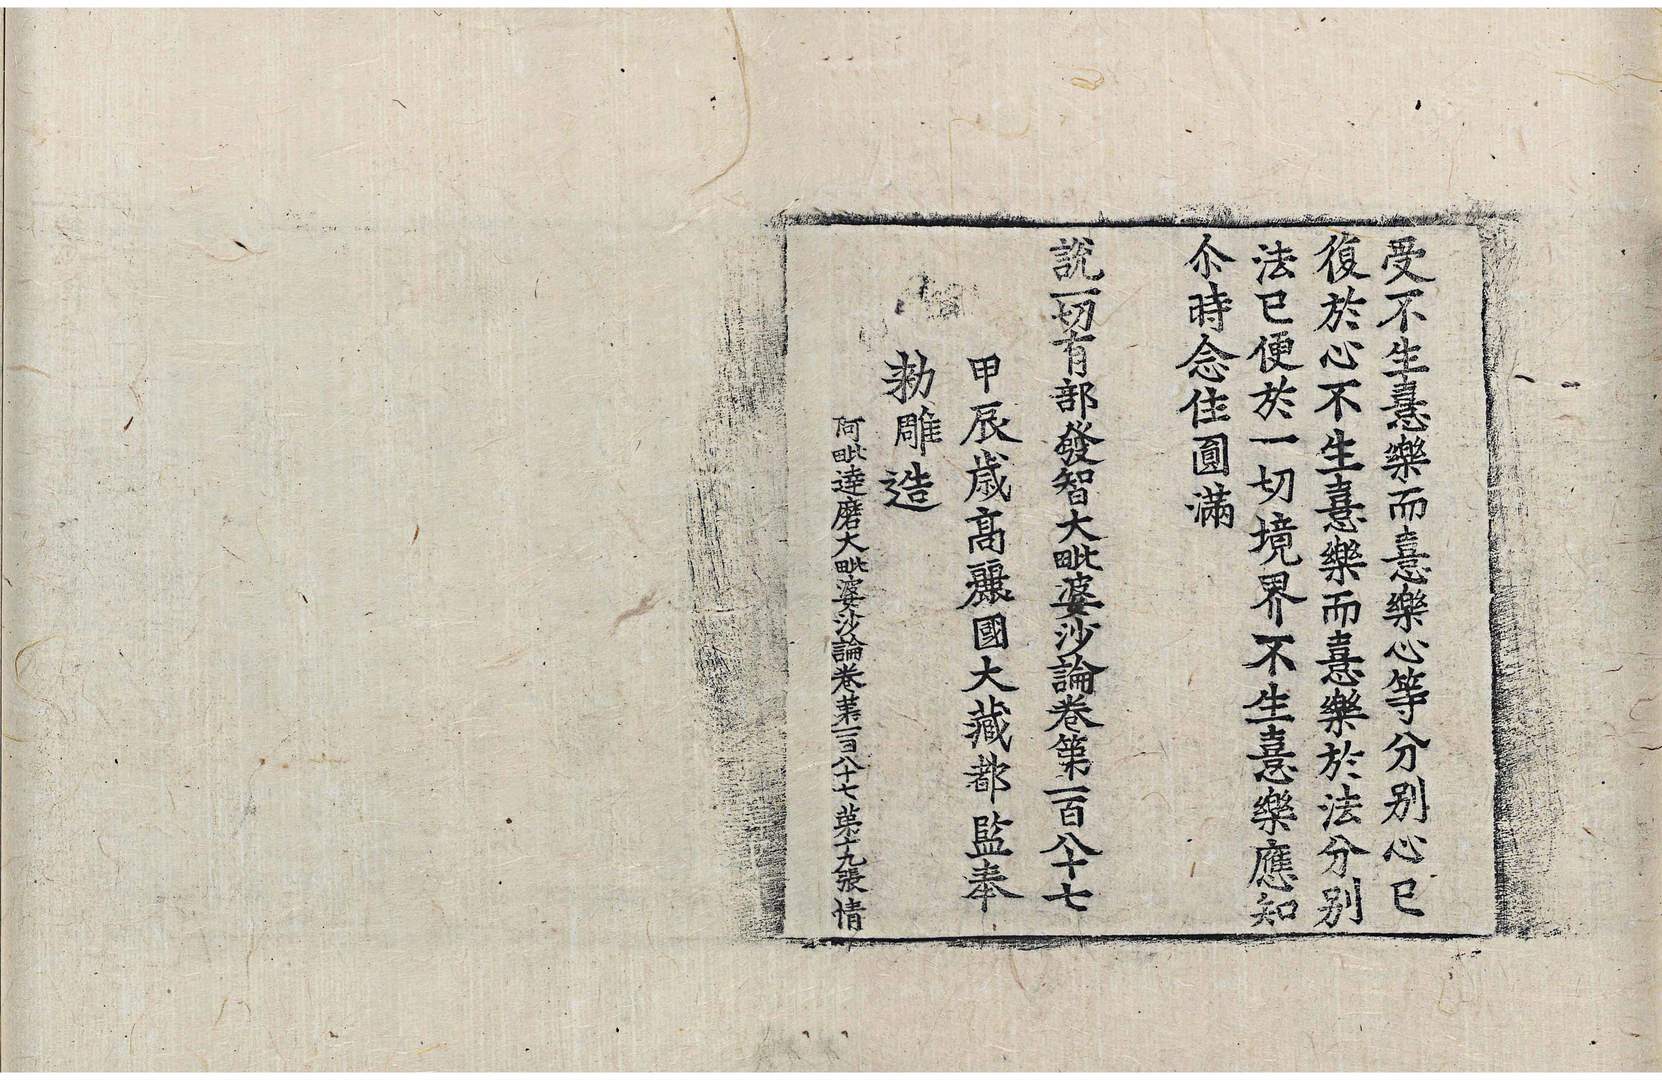 受不生憙樂而憙樂心等分別心已
復於心不生憙樂而憙樂於法分別
法已便於一切境界不生憙樂應知
尒時念住圓滿
說一切有部發智大毗婆沙論卷第一百八十七
甲辰歲高麗國大藏都監奉
勑雕造
阿毗達磨大毗婆沙論卷第一百八十七 第十九張 情